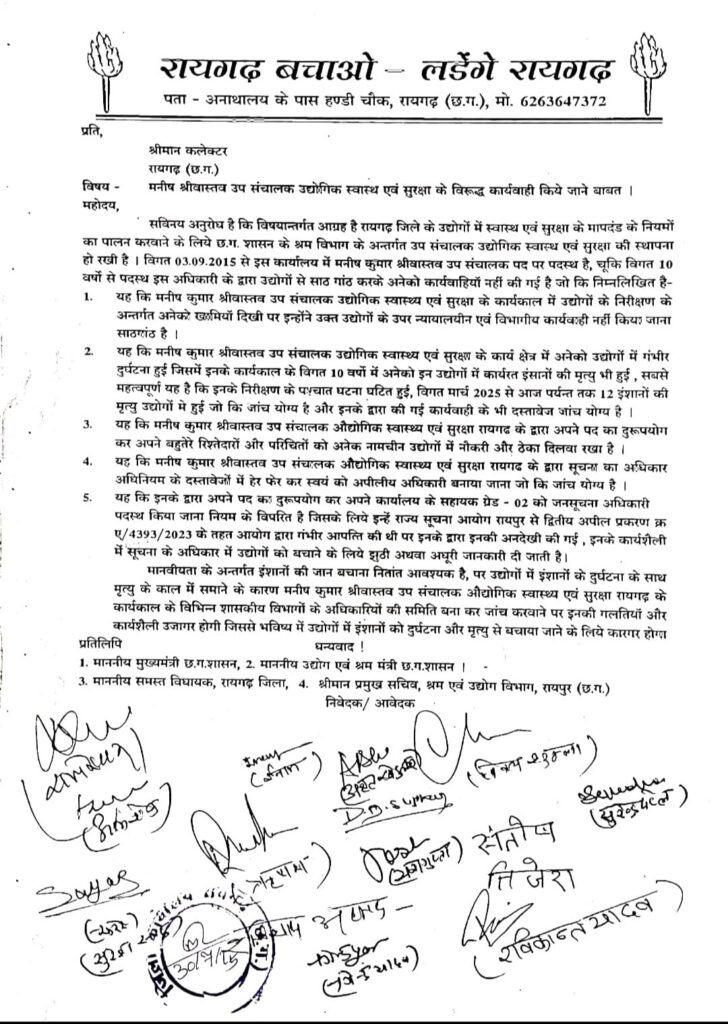 रायगढ़ बचाओ – लड़ेंगे रायगढ़
पता - अनाथालय के पास हण्डी चौक, रायगढ़ (छ.ग.), मो. 6263647372
प्रति,
श्रीमान कलेक्टर
रायगढ़ (छ.ग.)
विषय - मनीष श्रीवास्तव उप संचालक उद्योगिक स्वास्थ एवं सुरक्षा के विरूद्ध कार्यवाही किये जाने बाबत ।
महोदय,
सविनय अनुरोध है कि विषयान्तर्गत आग्रह है रायगढ़ जिले के उद्योगों में स्वास्थ एवं सुरक्षा के मापदंड के नियमों
का पालन करवाने के लिये छ.ग. शासन के श्रम विभाग के अन्तर्गत उप संचालक उद्योगिक स्वास्थ एवं सुरक्षा की स्थापना
हो रखी है । विगत 03.09.2015 से इस कार्यालय में मनीष कुमार श्रीवास्तव उप संचालक पद पर पदस्थ है, चूकि विगत 10
वर्षो से पदस्थ इस अधिकारी के द्वारा उद्योगों से साठ गांठ करके अनेको कार्यवाहियाँ नहीं की गई है जो कि निम्नलिखित है-
1. यह कि मनीष कुमार श्रीवास्तव उप संचालक उद्योगिक स्वास्थ्य एवं सुरक्षा के कार्यकाल में उद्योगों के निरीक्षण के
अन्तर्गत अनेकों खामियाँ दिखी पर इन्होंने उक्त उद्योगों के उपर न्यायालयीन एवं विभागीय कार्यवाही नहीं किया जाना
साठगांठ है ।
2. यह कि मनीष कुमार श्रीवास्तव उप संचालक उद्योगिक स्वास्थ्य एवं सुरक्षा के कार्य क्षेत्र में अनेको उद्योगों में गंभीर
दुर्घटना हुई जिसमें इनके कार्यकाल के विगत 10 वर्षो में अनेको इन उद्योगों में कार्यरत इंसानों की मृत्यु भी हुई , सबसे
महत्वपूर्ण यह है कि इनके निरीक्षण के पश्चात घटना घटित हुई, विगत मार्च 2025 से आज पर्यन्त तक 12 इंशानों की
मृत्यु उद्योगों मे हुई जो कि जांच योग्य है और इनके द्वारा की गई कार्यवाही के भी दस्तावेज जांच योग्य है ।
3. यह कि मनीष कुमार श्रीवास्तव उप संचालक औद्योगिक स्वास्थ्य एवं सुरक्षा रायगढ के द्वारा अपने पद का दुरूपयोग
कर अपने बहुतेरे रिश्तेदारों और परिचितों को अनेक नामचीन उद्योगों में नौकरी और ठेका दिलवा रखा है ।
4. यह कि मनीष कुमार श्रीवास्तव उप संचालक औद्योगिक स्वास्थ्य एवं सुरक्षा रायगढ के द्वारा सूचना का अधिकार
अधिनियम के दस्तावेजों में हेर फेर कर स्वयं को अपीलीय अधिकारी बनाया जाना जो कि जांच योग्य है ।
5. यह कि इनके द्वारा अपने पद का दुरूपयोग कर अपने कार्यालय के सहायक ग्रेड - 02 को जनसूचना अधिकारी
पदस्थ किया जाना नियम के विपरित है जिसके लिये इन्हें राज्य सूचना आयोग रायपुर से द्वितीय अपील प्रकरण क्र
ए/4393/2023 के तहत आयोग द्वारा गंभीर आपत्ति की थी पर इनके द्वारा इनकी अनदेखी की गई , इनके कार्यशैली
में सूचना के अधिकार में उद्योगों को बचाने के लिये झुठी अथवा अधूरी जानकारी दी जाती है।
मानवीयता के अन्तर्गत इंशानों की जान बचाना नितांत आवश्यक है, पर उद्योगों में इंशानों के दुर्घटना के साथ
मृत्यु के काल में समाने के कारण मनीष कुमार श्रीवास्तव उप संचालक औद्योगिक स्वास्थ्य एवं सुरक्षा रायगढ़ के
कार्यकाल के विभिन्न शासकीय विभागों के अधिकारियों की समिति बना कर जांच करवाने पर इनकी गलतियाँ और
कार्यशैली उजागर होगी जिससे भविष्य में उद्योगों में इंशानों को दुर्घटना और मृत्यु से बचाया जाने के लिये कारगर होगा
प्रतिलिपि धन्यवाद !
1. माननीय मुख्यमंत्री छ.ग.शासन, 2. माननीय उद्योग एवं श्रम मंत्री छ.ग.शासन ।
3. माननीय समस्त विधायक, रायगढ़ जिला, 4. श्रीमान प्रमुख सचिव, श्रम एवं उद्योग विभाग, रायपुर (छ.ग.)
निवेदक/ आवेदक
संतीष
तिजेरा
(रविकान्त यादव)